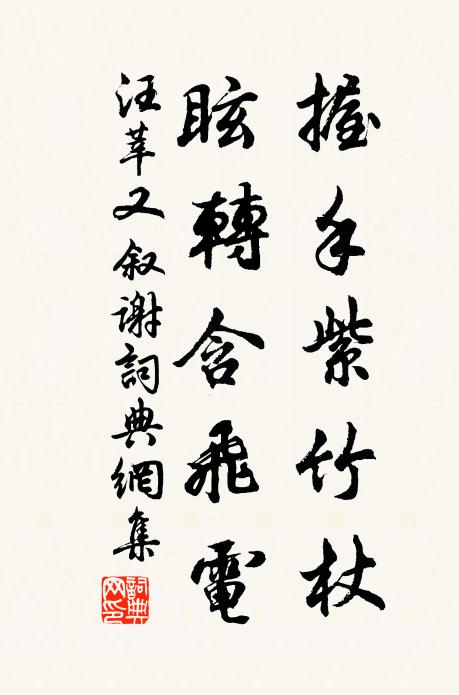 握手紫竹杖
眩轉含飛電
汪莘又叙谢詞典網集
詞典網印